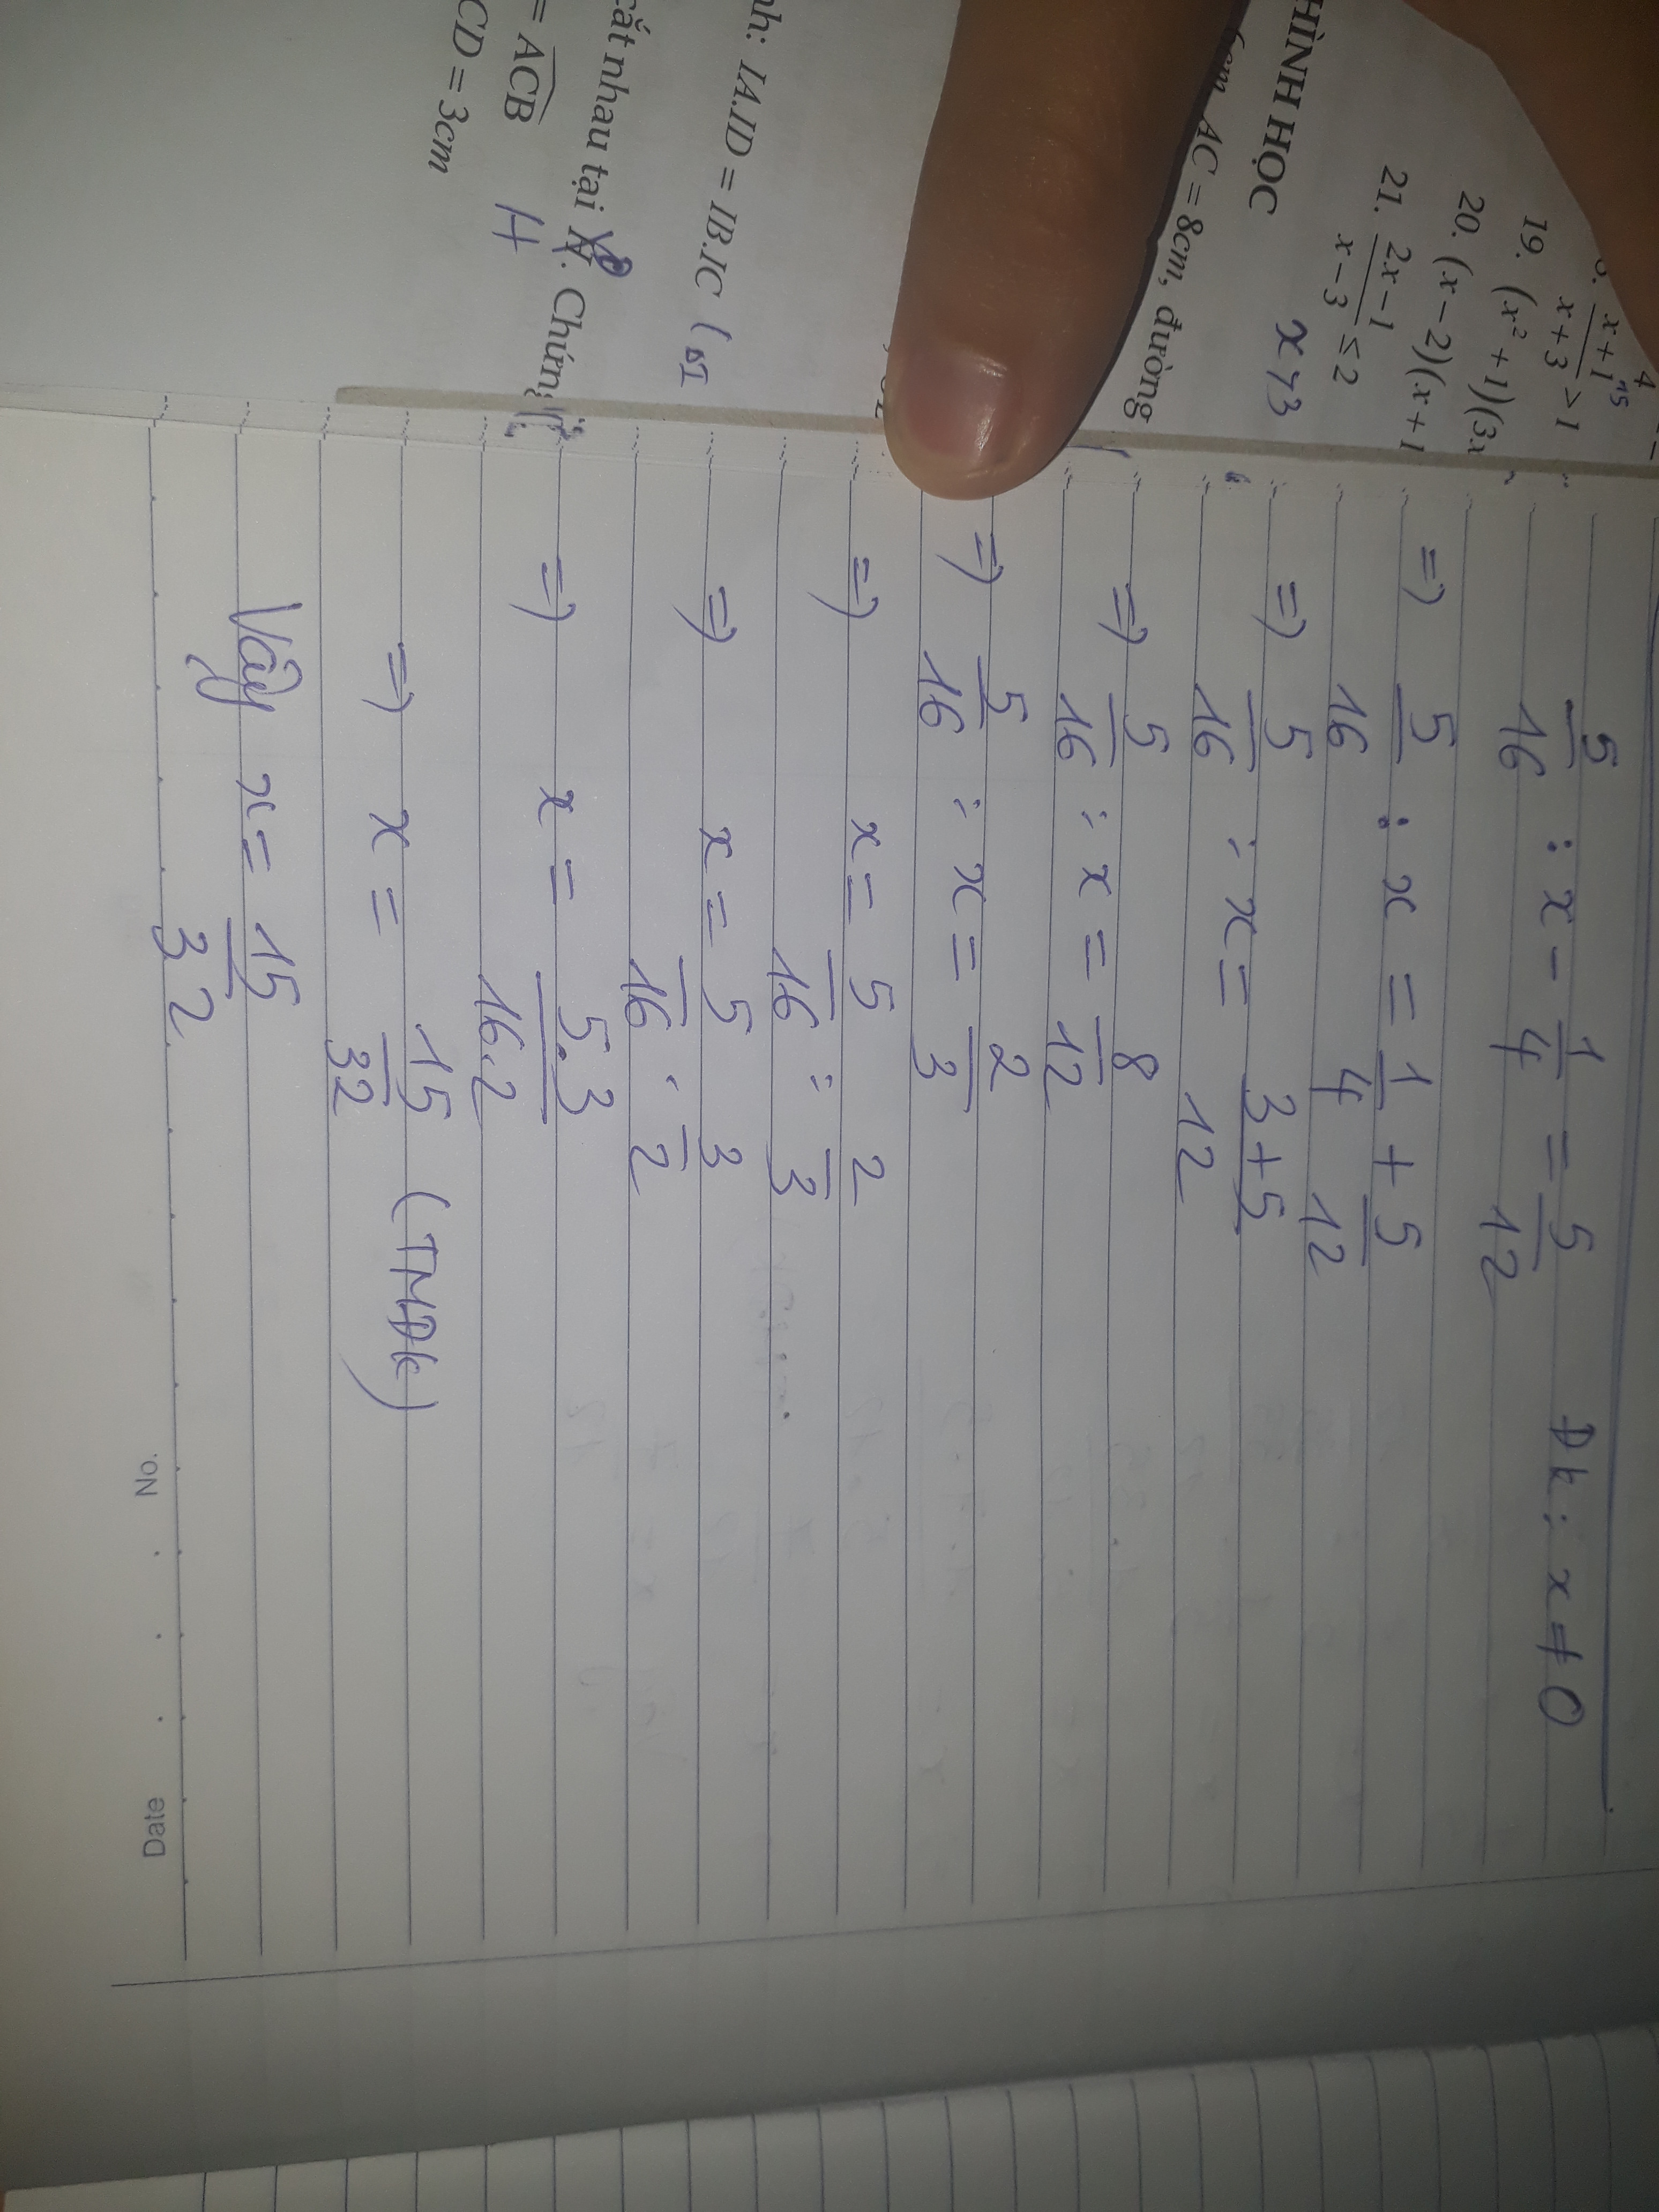 4 15
x+1/x+3 > 1
19. (x² + 1)(3x
20. (x − 2)(x + 1
21. 2x − 1/x − 3 ≤ 2
x > 3
HÌNH HỌC
AC = 8cm, đường
nh: IA.ID = IB.IC
cắt nhau tại . Chứng
H
= ACB
CD = 3cm
5/16 : x - 1/4 = 5/12 Đk: x ≠ 0
=> 5/16 : x = 1/4 + 5/12
=> 5/16 : x = 3+5/12
=> 5/16 : x = 8/12
=> 5/16 : x = 2/3
=> x = 5/16 : 2/3
=> x = 5/16 . 3/2
=> x = 5.3/16.2
=> x = 15/32 (TMĐk)
Vậy x = 15/32
No.
Date